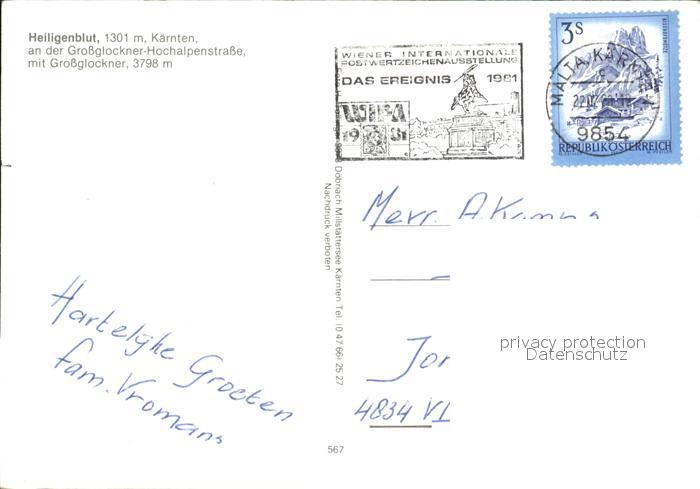 Heiligenblut, 1301 m, Kärnten,
an der Großglockner-Hochalpenstraße,
mit Großglockner, 3798 m
WIENER INTERNATIONALE
POSTWERTZEICHENAUSSTELLUNG
DAS EREIGNIS 1981
WIPA
1981
3s
MALTA, KÄRNTEN
9854
REPUBLIK ÖSTERREICH
Döbriach Millstättersee Kärnten Tel. (0 47 66) 25 27
Nachdruck verboten
Mevr. A.
Jor
4834 VL
privacy protection
Datenschutz
Hartelijke Groeten
fam. Vromans
567